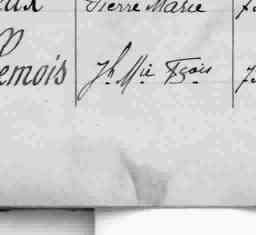 eux Pierre Marie
emois Jh Mie Fçois